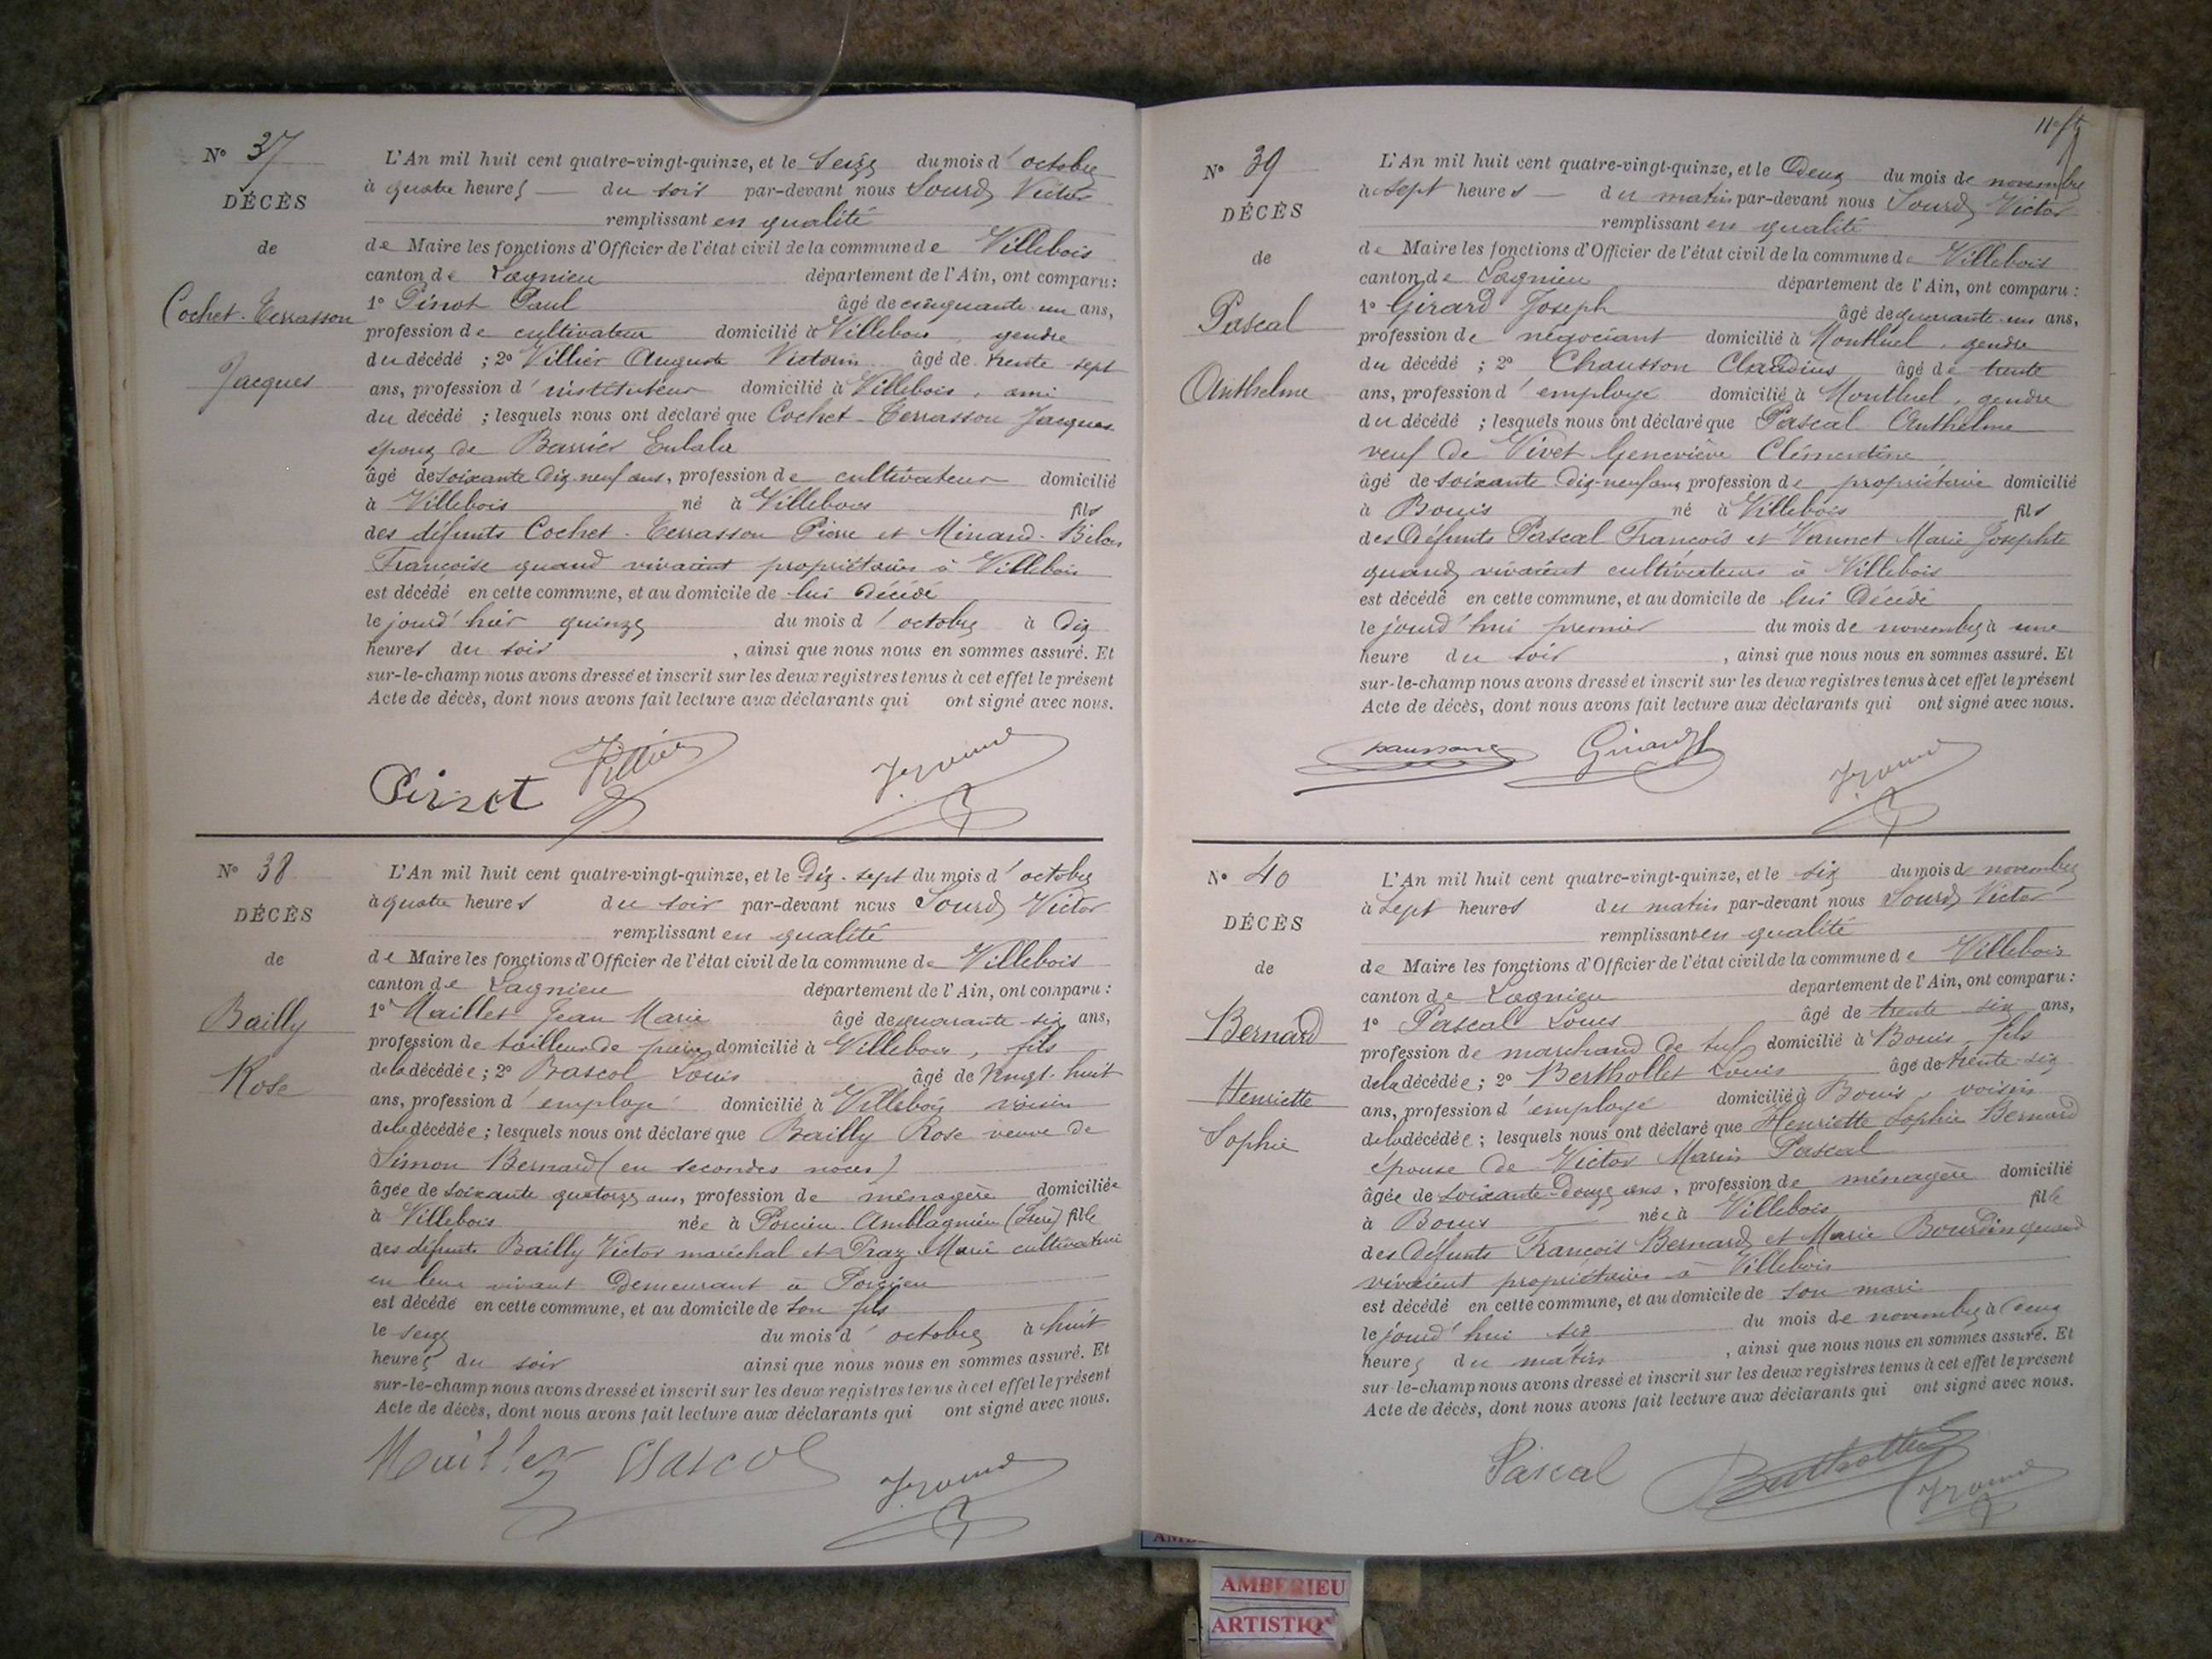 N° 37
DÉCÈS
de
Cochet-Terrasson
Jacques
L'An mil huit cent quatre-vingt-quinze, et le seize du mois d'octobre
à quatre heures du soir par-devant nous Sourd Victor
remplissant en qualité
de Maire les fonctions d'Officier de l'état civil de la commune de Villebois
canton de Lagnieu département de l'Ain, ont comparu :
1° Pinot Paul âgé de cinquante-un ans,
profession de cultivateur domicilié à Villebois, gendre
du décédé ; 2° Villier Auguste Victorin âgé de trente-sept
ans, profession d'instituteur domicilié à Villebois, ami
du décédé ; lesquels nous ont déclaré que Cochet-Terrasson Jacques
époux de Barrier Eulalie
âgé de soixante dix-neuf ans, profession de cultivateur domicilié
à Villebois né à Villebois fils
des défunts Cochet-Terrasson Pierre et Minand-
Françoise quand vivaient propriétaires à Villebois
est décédé en cette commune, et au domicile de lui décédé
le jourd'hier quinze du mois d'octobre à dix
heures du soir, ainsi que nous nous en sommes assuré. Et
sur-le-champ nous avons dressé et inscrit sur les deux registres tenus à cet effet le présent
Acte de décès, dont nous avons fait lecture aux déclarants qui ont signé avec nous.
Pinot Villier
N° 38
DÉCÈS
de
Bailly
Rose
L'An mil huit cent quatre-vingt-quinze, et le dix-sept du mois d'octobre
à quatre heures du soir par-devant nous Sourd Victor
remplissant en qualité
de Maire les fonctions d'Officier de l'état civil de la commune de Villebois
canton de Lagnieu département de l'Ain, ont comparu :
1° Maillet Jean Marie âgé de quarante-six ans,
profession de tailleur de pierre domicilié à Villebois, fils
de la décédée ; 2° Bascol Louis âgé de vingt-huit
ans, profession d'employé domicilié à Villebois voisin
de la décédée ; lesquels nous ont déclaré que Bailly Rose veuve de
Simon Bernard (en secondes noces)
âgée de soixante quatorze ans, profession de ménagère domiciliée
à Villebois née à Porcieu-Amblagnieu (Isère) fille
des défunts Bailly Victor maréchal et Praz Marie cultivatrice
en leur vivant demeurant à Porcieu
est décédé en cette commune, et au domicile de son fils
le seize du mois d'octobre à huit
heures du soir ainsi que nous nous en sommes assuré. Et
sur-le-champ nous avons dressé et inscrit sur les deux registres tenus à cet effet le présent
Acte de décès, dont nous avons fait lecture aux déclarants qui ont signé avec nous.
Maillet Bascol
N° 39
DÉCÈS
de
Pascal
Anthelme
L'An mil huit cent quatre-vingt-quinze, et le deux du mois de novembre
à sept heures du matin par-devant nous Sourd Victor
remplissant en qualité
de Maire les fonctions d'Officier de l'état civil de la commune de Villebois
canton de Lagnieu département de l'Ain, ont comparu :
1° Girard Joseph âgé de quarante-un ans,
profession de négociant domicilié à Montluel, gendre
du décédé ; 2° Chausson Claudius âgé de trente
ans, profession d'employé domicilié à Montluel, gendre
du décédé ; lesquels nous ont déclaré que Pascal Anthelme
veuf de Vivet Geneviève Clémentine
âgé de soixante-dix-neuf ans, profession de propriétaire domicilié
à Bouis né à Villebois fils
des défunts Pascal François et Vannet Marie Josephte
quand vivaient cultivateurs à Villebois
est décédé en cette commune, et au domicile de lui décédé
le jourd'hui premier du mois de novembre à une
heure du soir, ainsi que nous nous en sommes assuré. Et
sur-le-champ nous avons dressé et inscrit sur les deux registres tenus à cet effet le présent
Acte de décès, dont nous avons fait lecture aux déclarants qui ont signé avec nous.
Girard
N° 40
DÉCÈS
de
Bernard
Henriette
Sophie
L'An mil huit cent quatre-vingt-quinze, et le six du mois de novembre
à sept heures du matin par-devant nous Sourd Victor
remplissant en qualité
de Maire les fonctions d'Officier de l'état civil de la commune de Villebois
canton de Lagnieu département de l'Ain, ont comparu :
1° Pascal Louis âgé de trente-six ans,
profession de marchand de tuf domicilié à Bouis, fils
de la décédée ; 2° Berthollet Louis âgé de trente-six
ans, profession d'employé domicilié à Bouis, voisin
de la décédée ; lesquels nous ont déclaré que Henriette Sophie Bernard
épouse de Victor Marin Pascal
âgée de soixante-douze ans, profession de ménagère domicilié
à Bouis née à Villebois fille
des défunts François Bernard et Marie Bourdin quand
vivaient propriétaires à Villebois
est décédé en cette commune, et au domicile de son mari
le jourd'hui six du mois de novembre à deux
heures du matin, ainsi que nous nous en sommes assuré. Et
sur-le-champ nous avons dressé et inscrit sur les deux registres tenus à cet effet le présent
Acte de décès, dont nous avons fait lecture aux déclarants qui ont signé avec nous.
Pascal Berthollet
AMBERIEU
ARTISTIQ